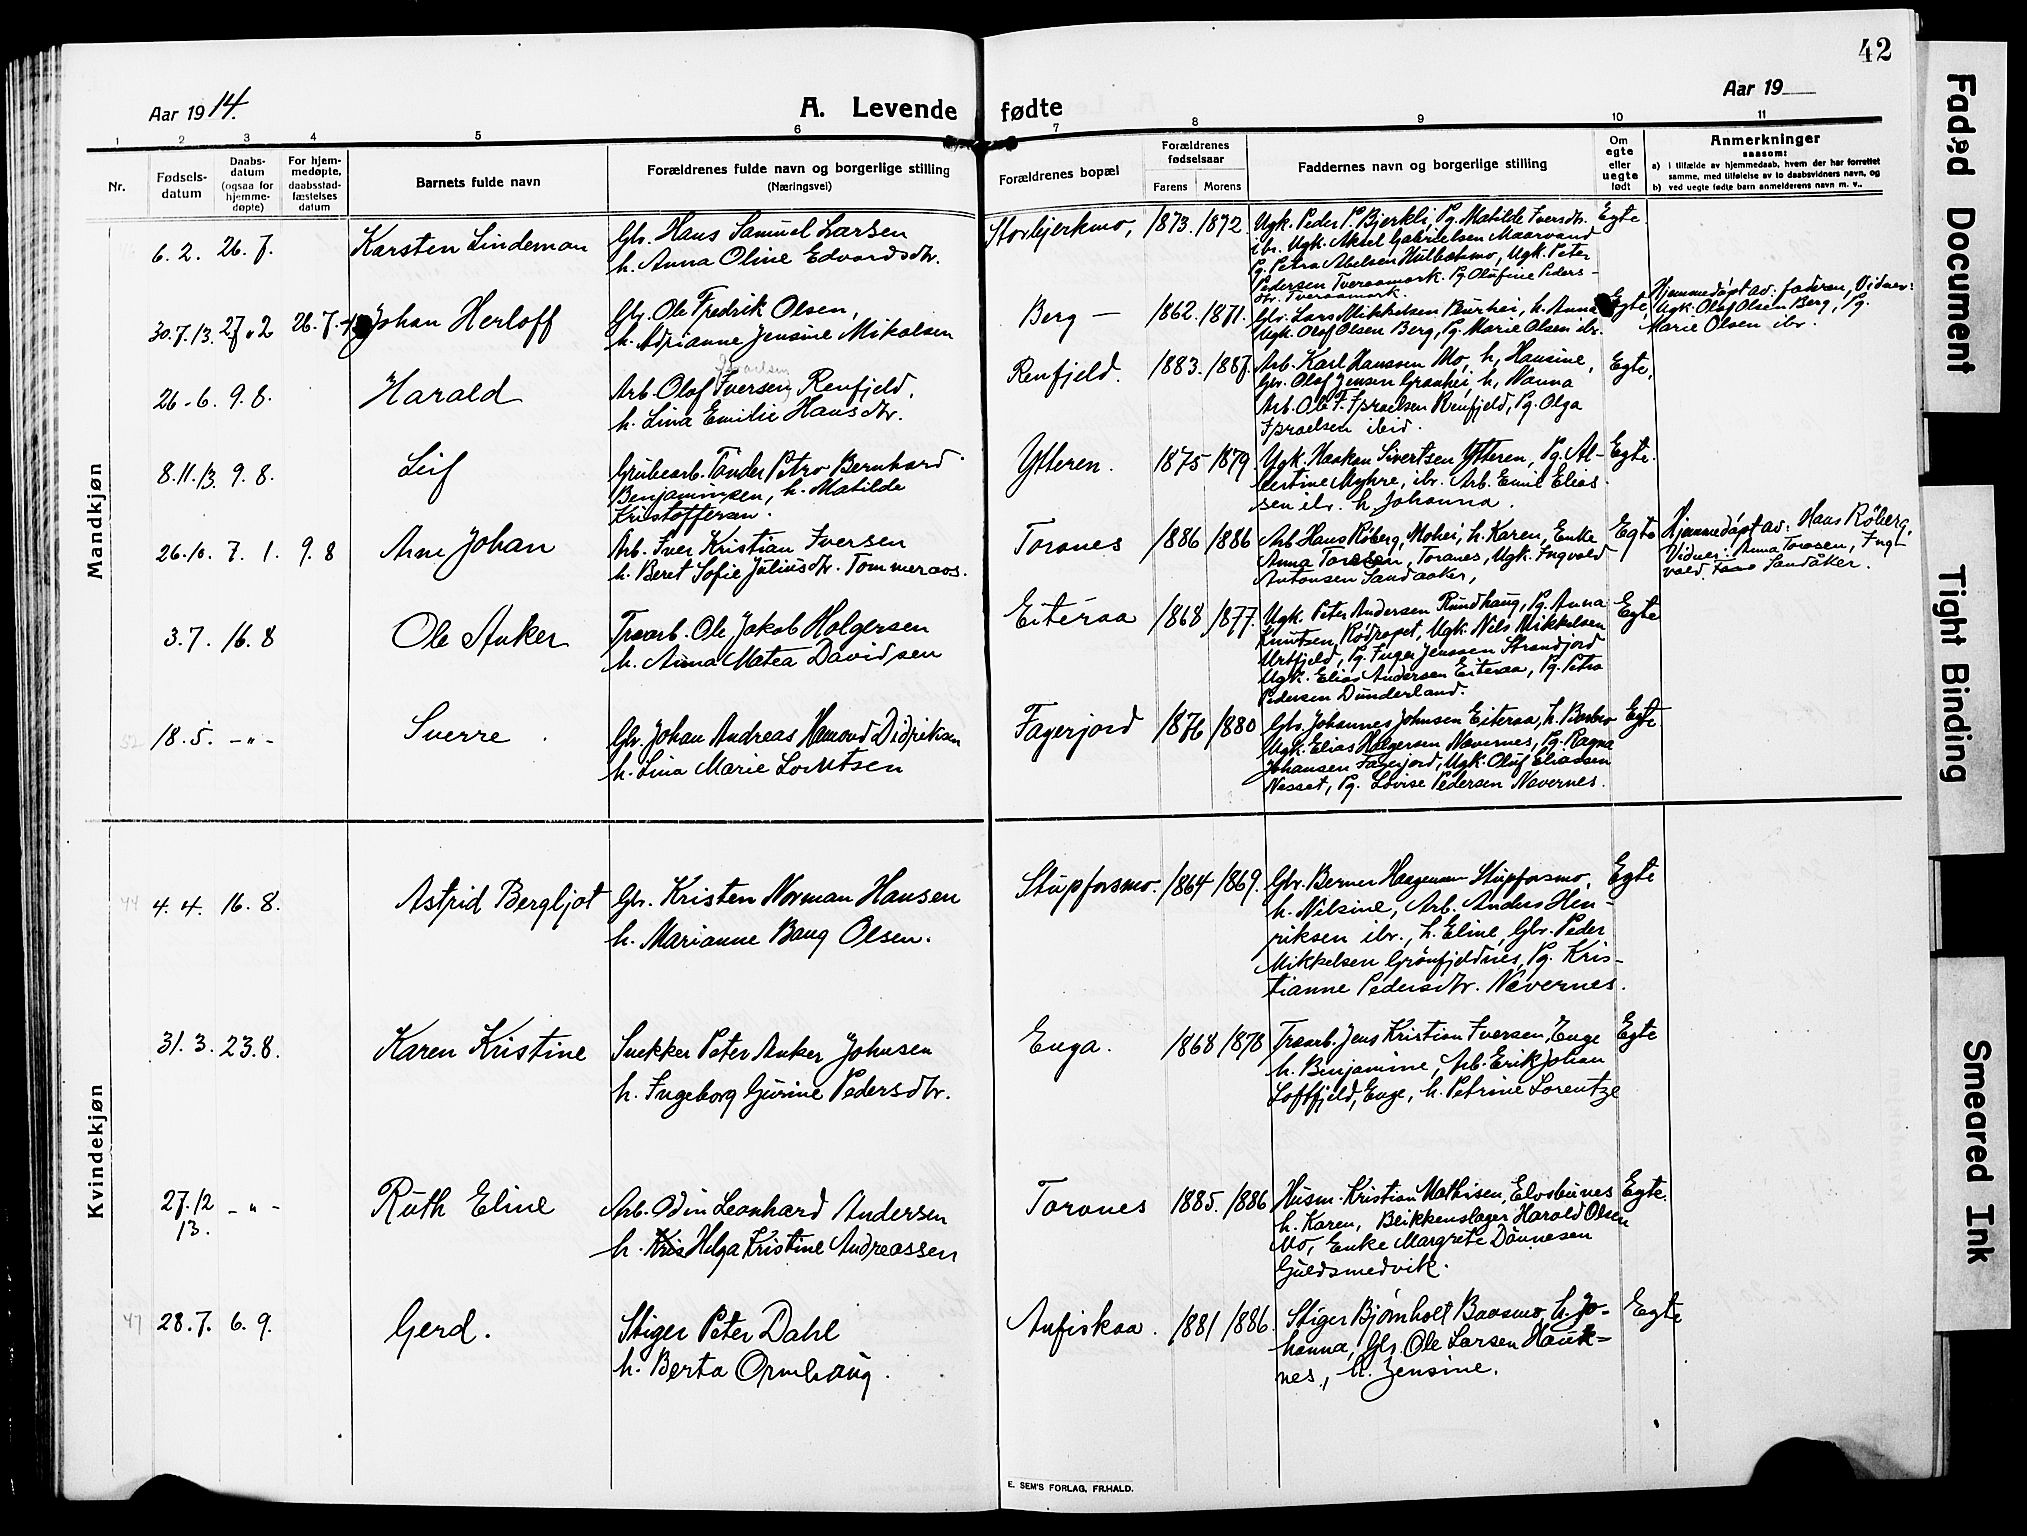 42
Aar 1914.
A. Levende fødte
Aar 19
1 2 3 4 5 6 7 8 9 10 11
Nr.
Fødsels-
datum
Daabs-
datum
(ogsaa for
hjemme-
døpte)
For hjem-
medøpte,
daabsstad-
fæstelses
datum
Barnets fulde navn
Forældrenes fulde navn og borgerlige stilling
(Næringsvei)
Forældrenes bopæl
Forældrenes
fødselsaar
Farens Morens
Faddernes navn og borgerlige stilling
Om
egte
eller
uegte
født
Anmerkninger
saasom:
a) i tilfælde av hjemmedaab, hvem der har forrettet
samme, med tilføielse av to daabsvidners navn, og
b) ved uegte fødte barn anmelderens navn m. v..
Mandkjøn
6. 2. 26. 7. Karsten Lindeman
Gbr. Hans Samuel Larsen
h. Anna Oline Edvardsdtr.
Storbjerkmo, 1873. 1872.
Ugk. Peder P. Bjerkli, Pg. Matilde Iversdtr.
ibr. Ugk. Aksel Gabrielsen Maarvand
Pg. Petra Abelsen Hulbækmo, Ugk. Peter
Pedersen Tveraamark. Pg. Olufine Peders-
dtr. Tveraamark.
Egte
30.7.13. 27. 2 26. 7. Johan Herloff
Gbr. Ole Fredrik Olsen,
h. Adrianne Jensine Mikalsen
Berg — 1862. 1871.
Gbr. Lars Mikkelsen Bjurhei, h. Anna
Ugk. Olof Olsen Berg, Pg. Marie Olsen ibr.
Egte,
Hjemmedøpt av: faderen, Vidner:
Ugk. Olof Olsen Berg, Pg.
Marie Olsen ibr.
26. 6. 9. 8. Harald
Arb. Olof Iversen Renfjeld.
h. Lina Emilie Hansdtr.
Renfjeld. 1883. 1887.
Arb. Karl Hanssen Mo, h, Hansine,
Gbr. Olof Jensen Granhei, h, Nanna
Arb. Ole F. Israelsen Renfjeld, Pg. Olga
Israelsen ibid.
Egte,
8.11.13. 9. 8. Leif
Grubearb. Tønder Petro Bernhard
Benjaminsen, h. Matilde
Kristoffersen.
Ytteren. 1875 1879
Ugk. Haakon Sivertsen Ytteren, Pg. Al-
bertine Myhre, ibr. Arb. Emil Elias-
sen ibr. h. Johanna.
Egte.
26.10. 7. 1. 9. 8 Arne Johan
Arb. Iver Kristian Iversen
h. Beret Sofie Juliusdtr. Tommeraas.
Toranes 1886 1886
Arb. Hans Røberg, Mohei, h. Karen, Enke
Anna Toresen, Toranes, Ugk. Ingvald
Antonsen Sandaaker,
Egte
Hjemmedøpt av: Hans Røberg,
Vidner: Anna Toresen, Ing-
vald. Sandåker.
3. 7. 16. 8 Ole Anker
Traarb. Ole Jakob Holgersen
h. Anna Matea Davidsen
Eiteraa 1868 1877.
Ugk. Peter Andersen Rundhaug, Pg. Anna
Knutsen, Rødropet, Ugk. Nils Mikkelsen
Urtfjeld, Pg. Inger Jenssen Strandjord
Ugk. Elias Andersen Eiteraa, Pg. Petra
Pedersen Dunderland.
Egte
52 18. 5. -"- Sverre
Gbr. Johan Andreas Hamond Didriksen
h. Lina Marie Lorntsen
Fagerjord 1876 1880
Gbr. Johannes Johnsen Eiteraa, h. Barbro
Ugk. Elias Holgersen Nævernes, Pg. Ragna
Johansen Fagerjord, Ugk. Oluf Eliassen
Nesset, Pg. Lovise Pedersen Nævernes.
Egte
Kvindekjøn
44 4. 4. 16. 8. Astrid Bergljot
Gbr. Kristen Norman Hansen
h. Marianne Bang Olsen.
Stupforsmo. 1864 1869.
Gbr. Berner Haagensen Stupforsmo,
h. Nilsine, Arb. Anders Hen-
riksen ibr., h. Eline, Gbr. Peder
Mikkelsen Grønfjeldnes, Pg. Kris-
tianne Pedersdtr. Nævernes.
Egte
31. 3. 23.8. Karen Kristine
Snekker Peter Anker Johnsen
h. Ingeborg Gurine Pedersdtr.
Enga. 1868 1878
Traarb. Jens Kristian Iversen, Enge
h. Benjamine, Arb. Erik Johan
Loftfjeld, Enge, h. Petrine Lorentze
Egte
27.12 -"- Ruth Eline
13.
Arb. Odin Leonhard Andersen
h. Kris Helga Kristine Andreassen
Toranes 1885. 1886
Husm. Kristian Mathisen, Elvsbunes
h. Karen, Blikkenslager Harald Olsen
Mo, Enke Margrete Dønnesen
Guldsmedvik.
Egte.
47 28. 7. 6. 9. Gerd.
Stiger Peter Dahl
h. Berta Ormhaug.
Anfiskaa. 1881 1886.
Stiger Bjørnholt Baasmo, h. Jo-
hanna, Gbr. Ole Larsen Hauk-
nes., h. Jensine.
Egte
E. SEM'S FORLAG, FR.HALD.
Faded Document
Tight Binding
Smeared Ink